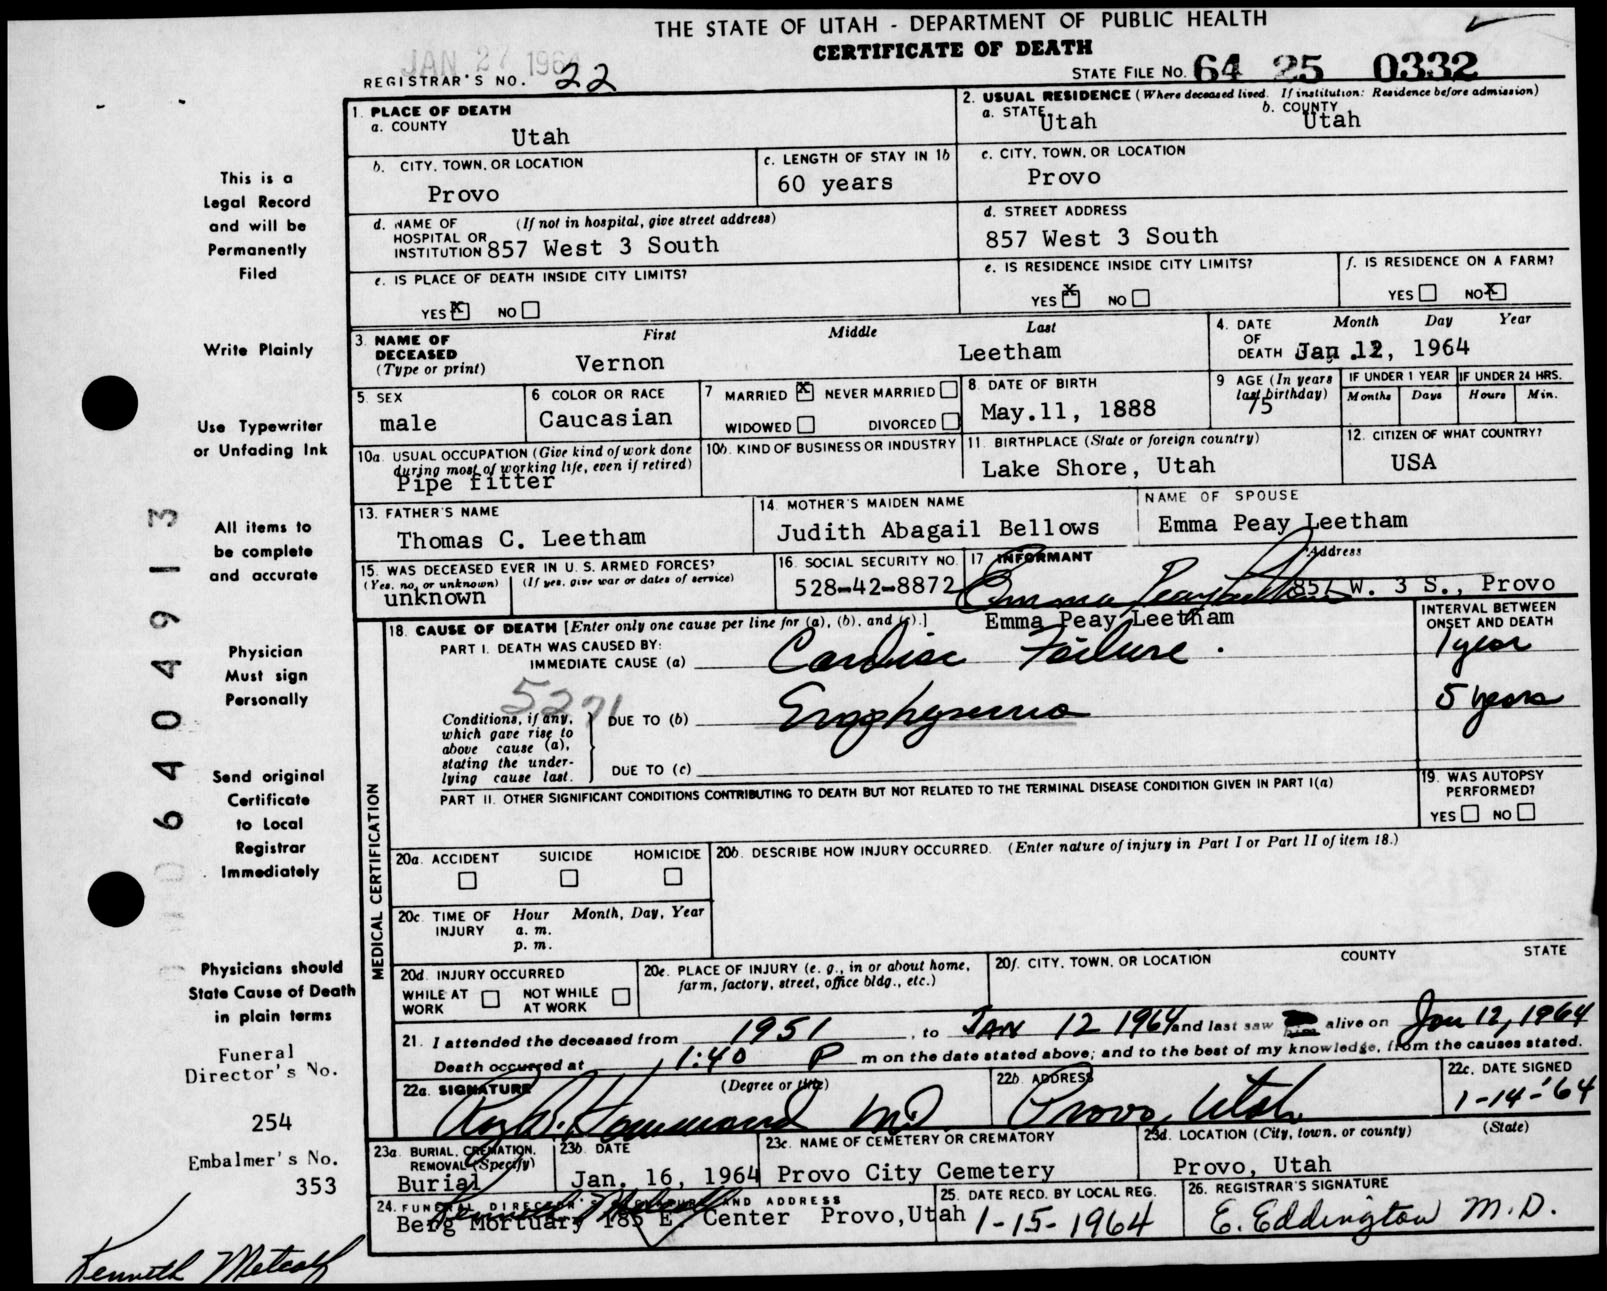 THE STATE OF UTAH - DEPARTMENT OF PUBLIC HEALTH
CERTIFICATE OF DEATH
JAN 27 1964
REGISTRAR'S NO. 22
STATE FILE NO. 64 25 0332
1. PLACE OF DEATH
a. COUNTY
Utah
2. USUAL RESIDENCE (Where deceased lived. If institution: Residence before admission)
a. STATE Utah
b. COUNTY Utah
b. CITY, TOWN, OR LOCATION
Provo
c. LENGTH OF STAY IN 1b
60 years
c. CITY, TOWN, OR LOCATION
Provo
d. NAME OF (If not in hospital, give street address)
HOSPITAL OR
INSTITUTION 857 West 3 South
d. STREET ADDRESS
857 West 3 South
e. IS PLACE OF DEATH INSIDE CITY LIMITS?
YES X NO
e. IS RESIDENCE INSIDE CITY LIMITS?
YES X NO
f. IS RESIDENCE ON A FARM?
YES NO X
3. NAME OF
DECEASED
(Type or print)
First Middle Last
Vernon Leetham
4. DATE
OF
DEATH
Month Day Year
Jan. 12, 1964
5. SEX
male
6 COLOR OR RACE
Caucasian
7 MARRIED X NEVER MARRIED
WIDOWED DIVORCED
8. DATE OF BIRTH
May.11, 1888
9 AGE (In years
last birthday)
75
IF UNDER 1 YEAR
Months Days
IF UNDER 24 HRS.
Hours Min.
10a. USUAL OCCUPATION (Give kind of work done
during most of working life, even if retired)
Pipe fitter
10b. KIND OF BUSINESS OR INDUSTRY
11. BIRTHPLACE (State or foreign country)
Lake Shore, Utah
12. CITIZEN OF WHAT COUNTRY?
USA
13. FATHER'S NAME
Thomas C. Leetham
14. MOTHER'S MAIDEN NAME
Judith Abagail Bellows
NAME OF SPOUSE
Emma Peay Leetham
15. WAS DECEASED EVER IN U. S. ARMED FORCES?
(Yes, no, or unknown) (If yes, give war or dates of service)
unknown
16. SOCIAL SECURITY NO.
528-42-8872
17 INFORMANT Address
Emma Peay Leetham 857 W. 3 S., Provo
Emma Peay Leetham
18. CAUSE OF DEATH [Enter only one cause per line for (a), (b), and (c).]
INTERVAL BETWEEN
ONSET AND DEATH
PART I. DEATH WAS CAUSED BY:
IMMEDIATE CAUSE (a) Cardiac Failure. 1 year
5271
Conditions, if any,
which gave rise to
above cause (a),
stating the under-
lying cause last.
DUE TO (b) Emphysema 5 years
DUE TO (c)
PART II. OTHER SIGNIFICANT CONDITIONS CONTRIBUTING TO DEATH BUT NOT RELATED TO THE TERMINAL DISEASE CONDITION GIVEN IN PART I(a)
19. WAS AUTOPSY
PERFORMED?
YES NO
MEDICAL CERTIFICATION
20a. ACCIDENT SUICIDE HOMICIDE
20b. DESCRIBE HOW INJURY OCCURRED. (Enter nature of injury in Part I or Part II of item 18.)
20c. TIME OF Hour Month, Day, Year
INJURY a. m.
p. m.
20d. INJURY OCCURRED
WHILE AT NOT WHILE
WORK AT WORK
20e. PLACE OF INJURY (e. g., in or about home,
farm, factory, street, office bldg., etc.)
20f. CITY, TOWN, OR LOCATION COUNTY STATE
21. I attended the deceased from 1951, to JAN 12 1964 and last saw him alive on Jan 12, 1964
Death occurred at 1:40 P m on the date stated above; and to the best of my knowledge, from the causes stated.
22a. SIGNATURE (Degree or title)
Hammond M.D.
22b. ADDRESS
Provo, Utah
22c. DATE SIGNED
1-14-'64
23a. BURIAL, CREMATION,
REMOVAL (Specify)
Burial
23b. DATE
Jan. 16, 1964
23c. NAME OF CEMETERY OR CREMATORY
Provo City Cemetery
23d. LOCATION (City, town, or county) (State)
Provo, Utah
24. FUNERAL DIRECTOR'S SIGNATURE AND ADDRESS
Kenneth Metcalf
Berg Mortuary 185 E. Center Provo, Utah
25. DATE RECD. BY LOCAL REG.
1-15-1964
26. REGISTRAR'S SIGNATURE
E. Eddington M.D.
This is a
Legal Record
and will be
Permanently
Filed
Write Plainly
Use Typewriter
or Unfading Ink
All items to
be complete
and accurate
Physician
Must sign
Personally
Send original
Certificate
to Local
Registrar
Immediately
Physicians should
State Cause of Death
in plain terms
Funeral
Director's No.
254
Embalmer's No.
353
Kenneth Metcalf
6404913